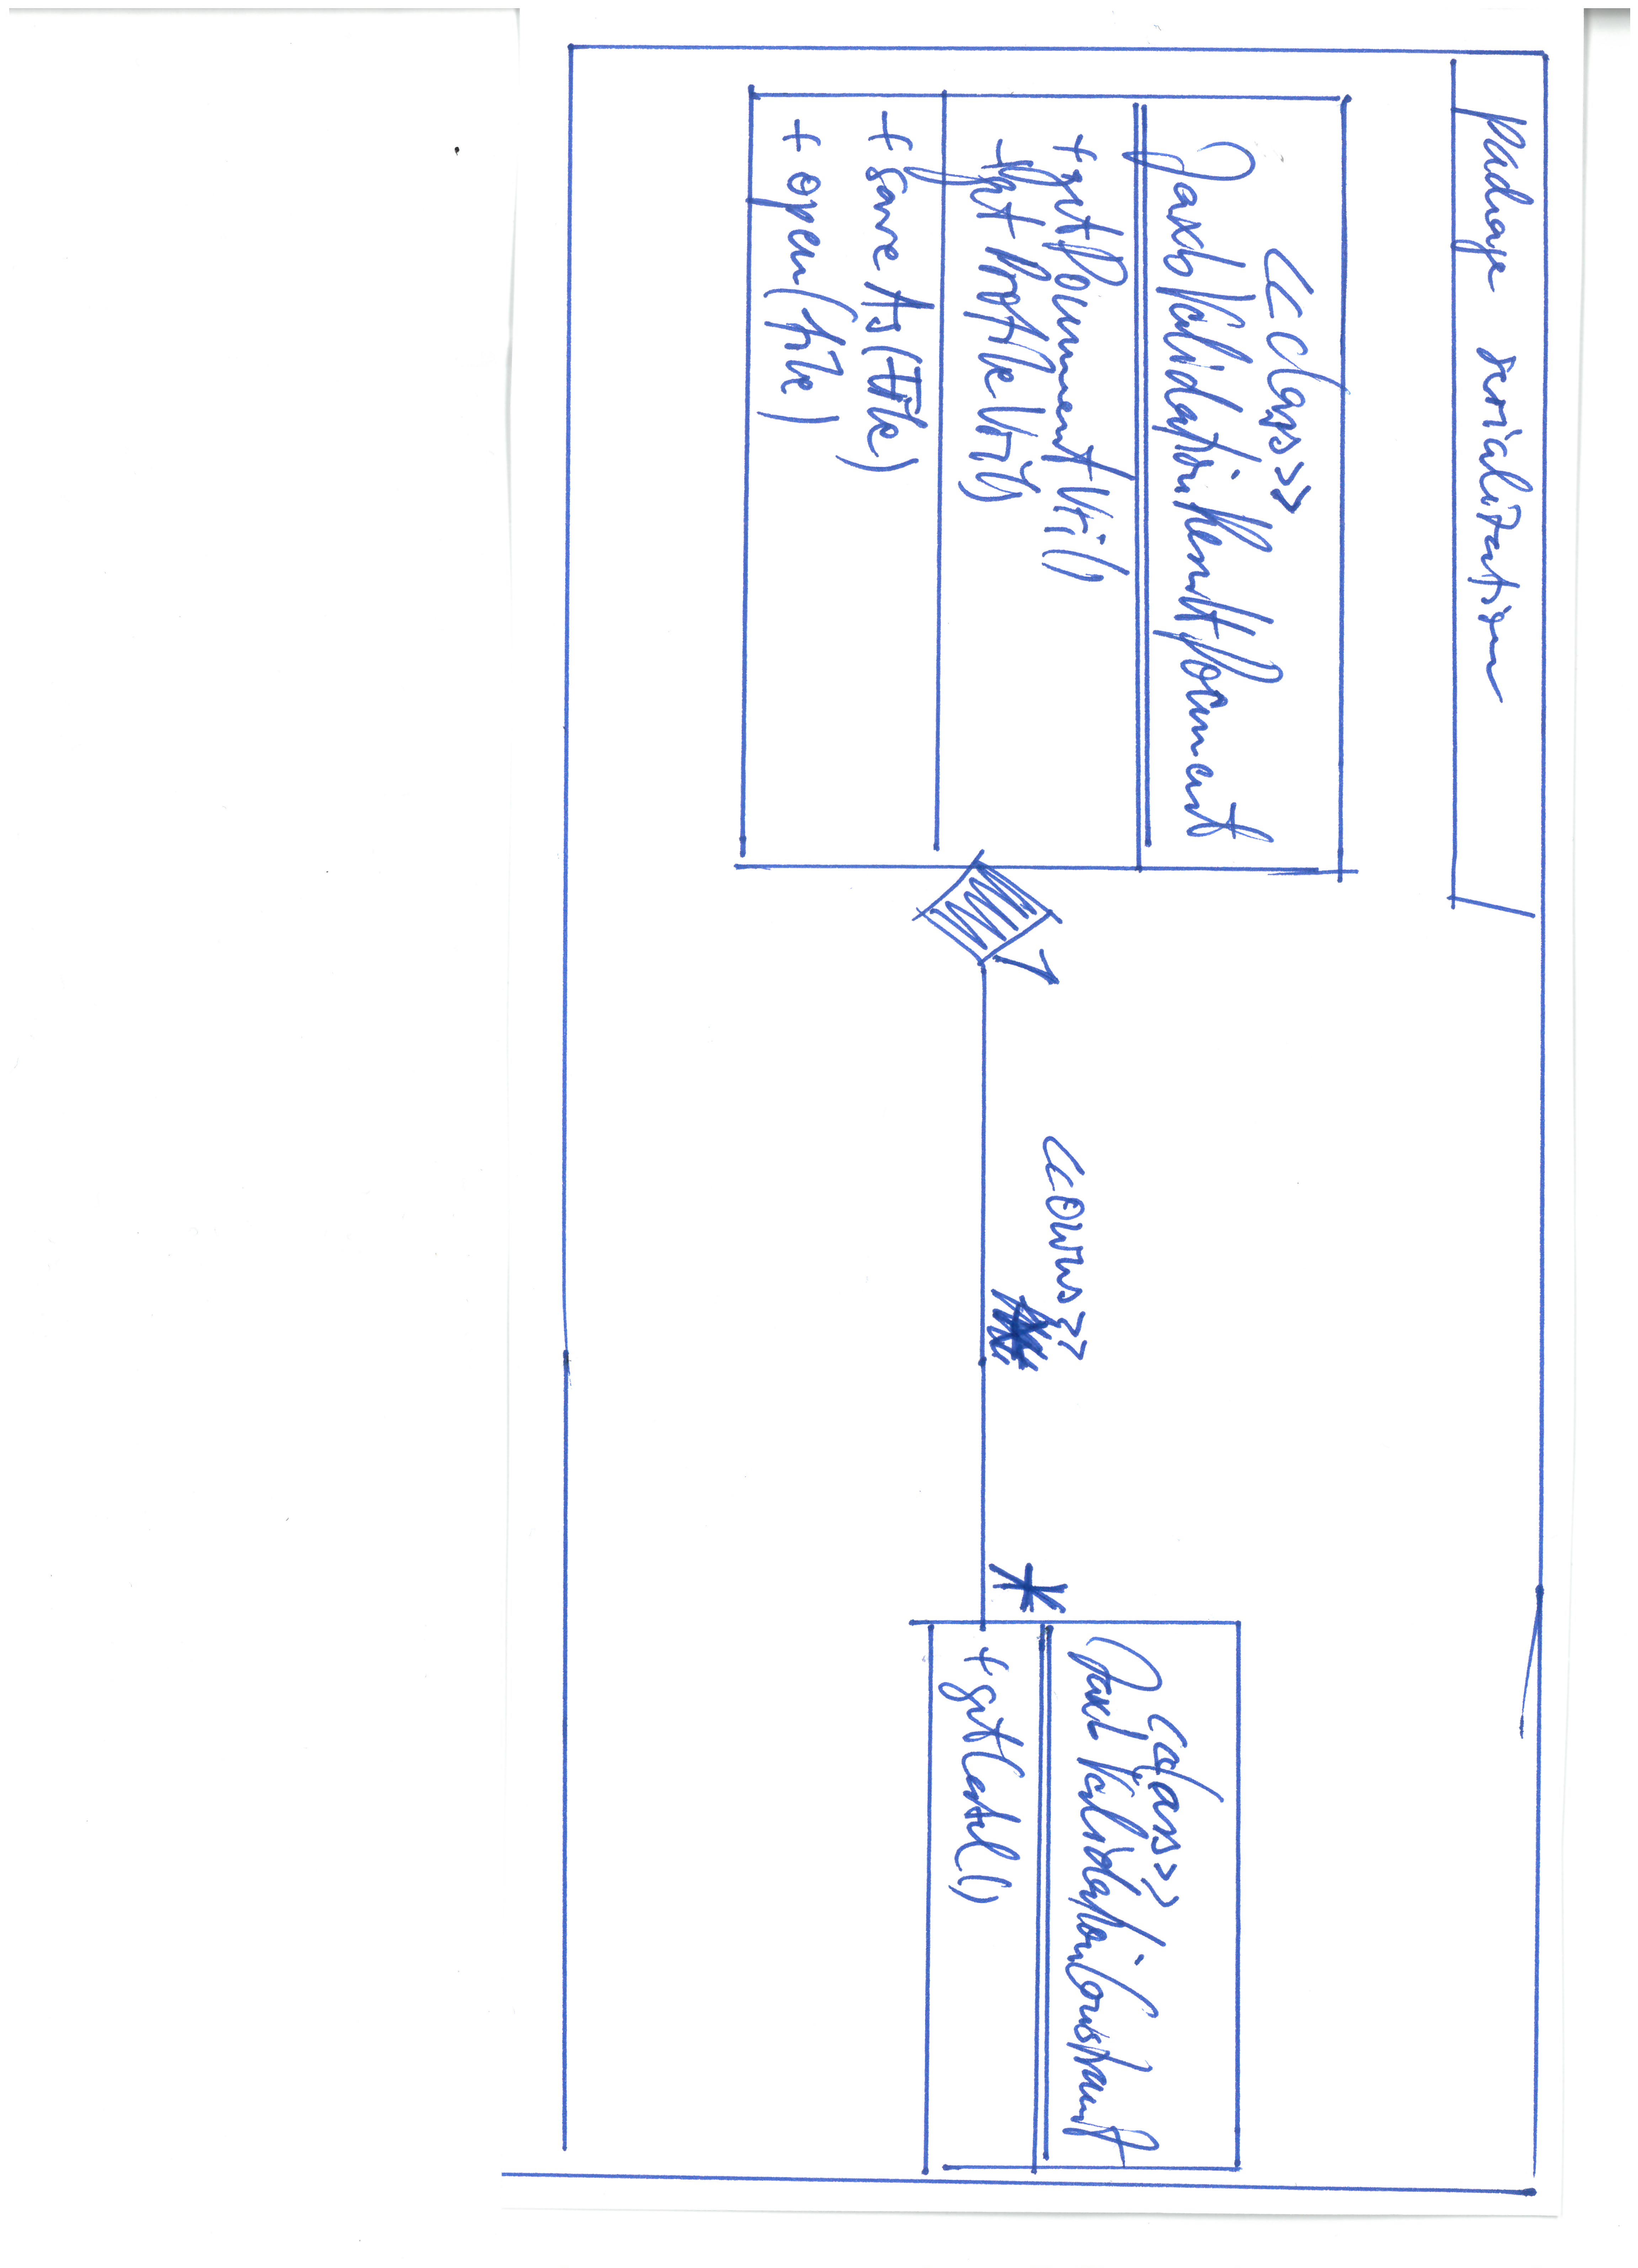 package serialization
<<class>>
JaxbValidationResultDocument
+getDocumentUri()
+getProfileUri()
+saveAs(File)
+open(file)
<<owns>>
1
*
<<class>>
JaxbValidationConstraint
+getLabel()